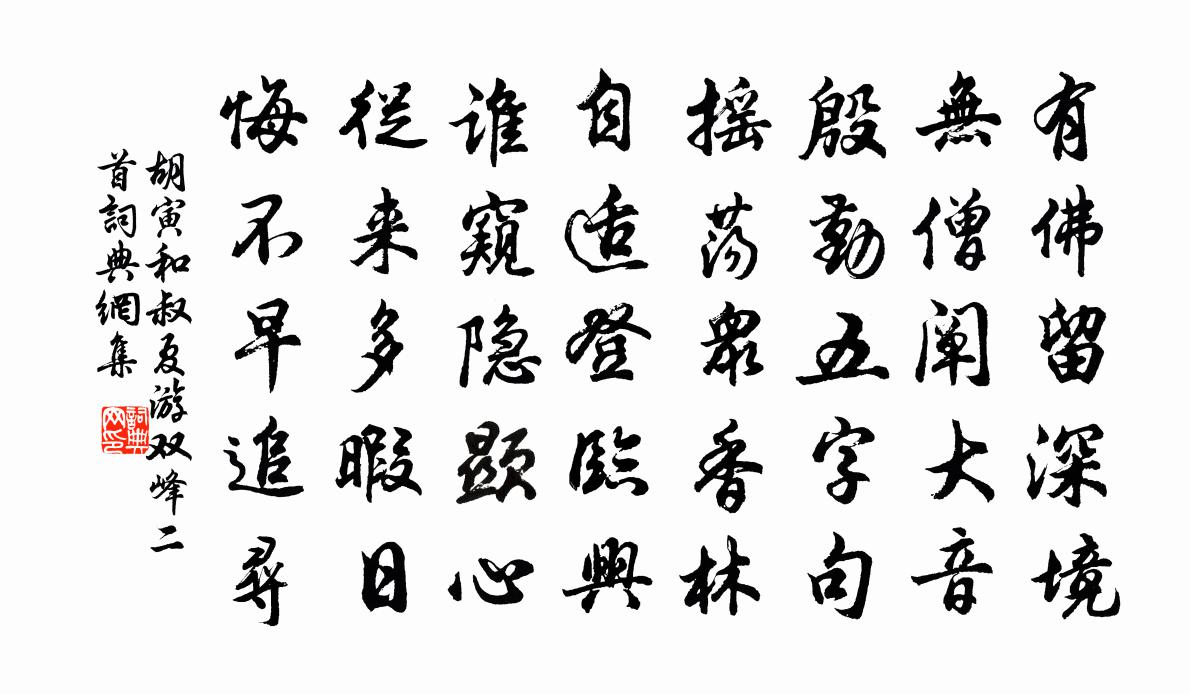 有佛留深境
無僧闡大音
殷勤五字句
摇荡衆香林
自适登臨興
谁窺隐顯心
從来多暇日
悔不早追尋
胡寅和叔夏游双峰二
首詞典網集
詞典网印